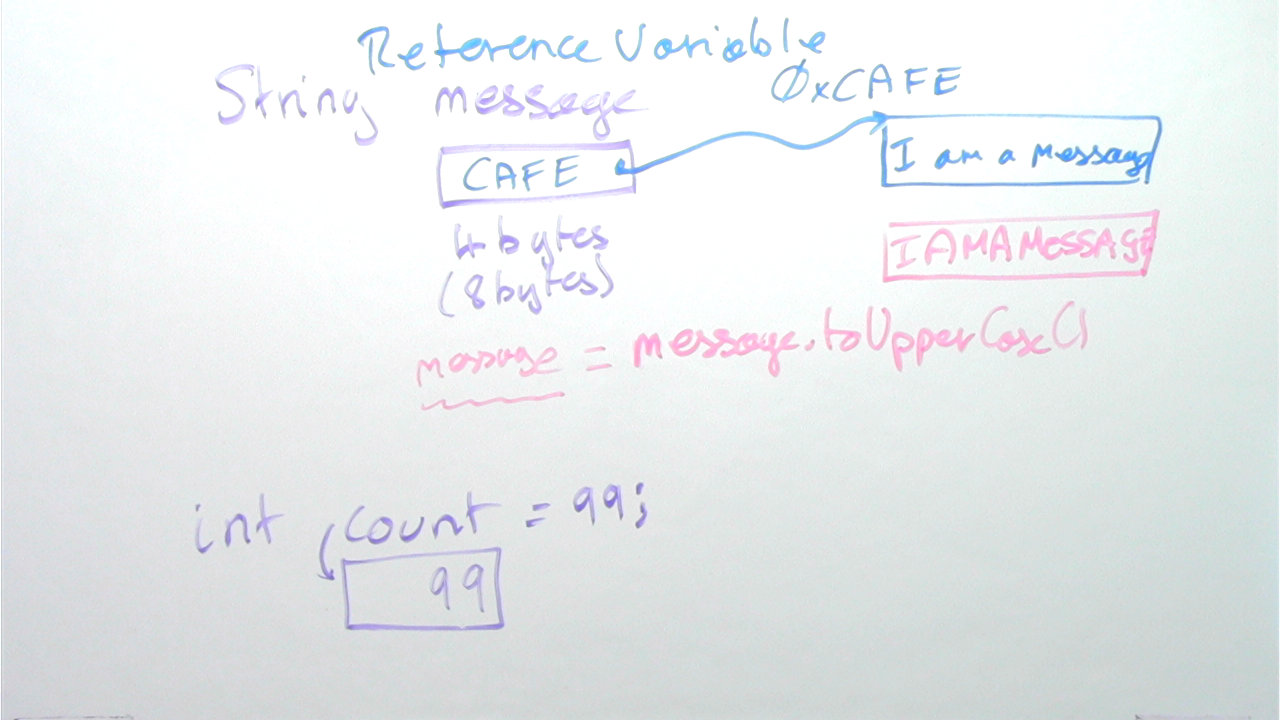 Reference Variable
String message
ØxCAFE
CAFE
I am a Message
4 bytes
(8 bytes)
I AM A MESSAGE
message = message.toUpperCase()
int count = 99;
99